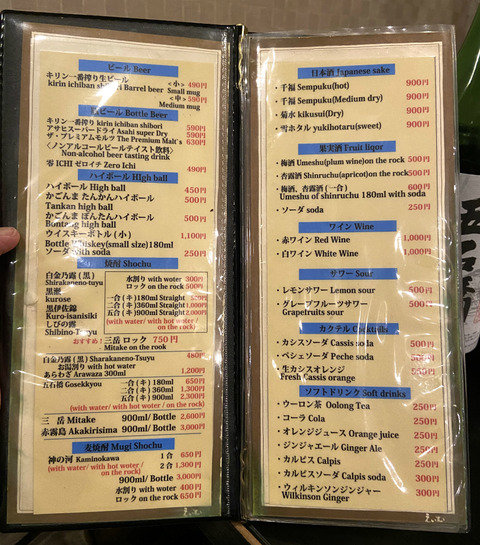 ビール Beer
キリン一番搾り生ビール <小> 490円
kirin ichiban shibori Barrel beer Small mug
<中> 590円
Medium mug
Bottle Beer
キリン一番搾り kirin ichiban shibori 590円
アサヒスーパードライ Asahi super Dry 590円
ザ・プレミアムモルツ The Premium Malt`s 630円
〈ノンアルコールビールテイスト飲料〉
Non-alcohol beer tasting drink
零 ICHI ゼロイチ Zero Ichi 490円
ハイボール HIgh ball
ハイボール High ball 450円
かごんま たんかんハイボール 500円
Tankan high ball
かごんま ぽんたんハイボール 500円
Bontang high ball
ウイスキーボトル (小) 1,100円
Bottle Whiskey(small size)180ml
ソーダ With soda 250円
焼酎 Shochu
白金乃露 (黒)
Shirakaneno-tuyu
水割り with woter 300円
ロック on the rock 500円
黒瀬
kurose
黒伊佐錦
Kuro-isanisiki
しびの露
Shibino-Tsuyu
二合 (キ) 180ml Straight 500円
二合 (キ) 360ml Straight 1,000円
五合 (キ) 900ml Straight 2,000円
(with water/ with hot woter/
on the rock)
おすすめ! 三岳 ロック 750円
Mitake on the rock
白金乃露 (黒) Sharakaneno-Tsuyu 480円
お湯割り with hot water
あらわざ Arawaza 300ml 1,200円
五石橋 Gosekkyou 一合 (キ) 180ml 650円
二合 (キ) 360ml 1,300円
五合 (キ) 900ml 2,300円
(with water/ with hot woter/ on the rock)
三 岳 Mitake 900ml/ Bottle 2,600円
赤霧島 Akakirisima 900ml/ Bottle 3,000円
麦焼酎 MugI Shochu
神の河 Kaminokawa 1合 650円
(with water/ with hot woter /
on the rock) 2合 1,300円
900ml/ Bottle 3,000円
水割り with woter 400円
ロック on the rock 650円
日本酒 Japanese sake
・千福 Sempuku(hot) 900円
・千福 Sempuku(Medium dry) 900円
・菊水 kikusui(Dry) 900円
・雪ホタル yukihotaru(sweet) 900円
果実酒 Fruit liqor
・梅酒 Umeshu(plum wine)on the rock 500円
・杏露酒 Shinruchu(apricot)on the rock 500円
・梅酒、杏露酒 (一合) 600円
Umeshu of shinruchu 180ml with soda
・ソーダ soda 250円
ワイン Wine
・赤ワイン Red Wine 1,000円
・白ワイン White Wine 1,000円
サワー Sour
・レモンサワー Lemon sour 500円
・グレープフルーツサワー 500円
Grapefruits sour
カクテル Cocktails
・カシスソーダ Cassis soda 550円
・ペシェソーダ Peche soda 550円
・生カシスオレンジ 550円
Fresh Cassis orange
ソフトドリンク Soft drinks
・ウーロン茶 Oolong Tea 250円
・コーラ Cola 250円
・オレンジジュース Orange juice 250円
・ジンジャエール Ginger Ale 250円
・カルピス Calpis 250円
・カルピスソーダ Calpis soda 300円
・ウィルキンソンジンジャー 300円
Wilkinson Ginger